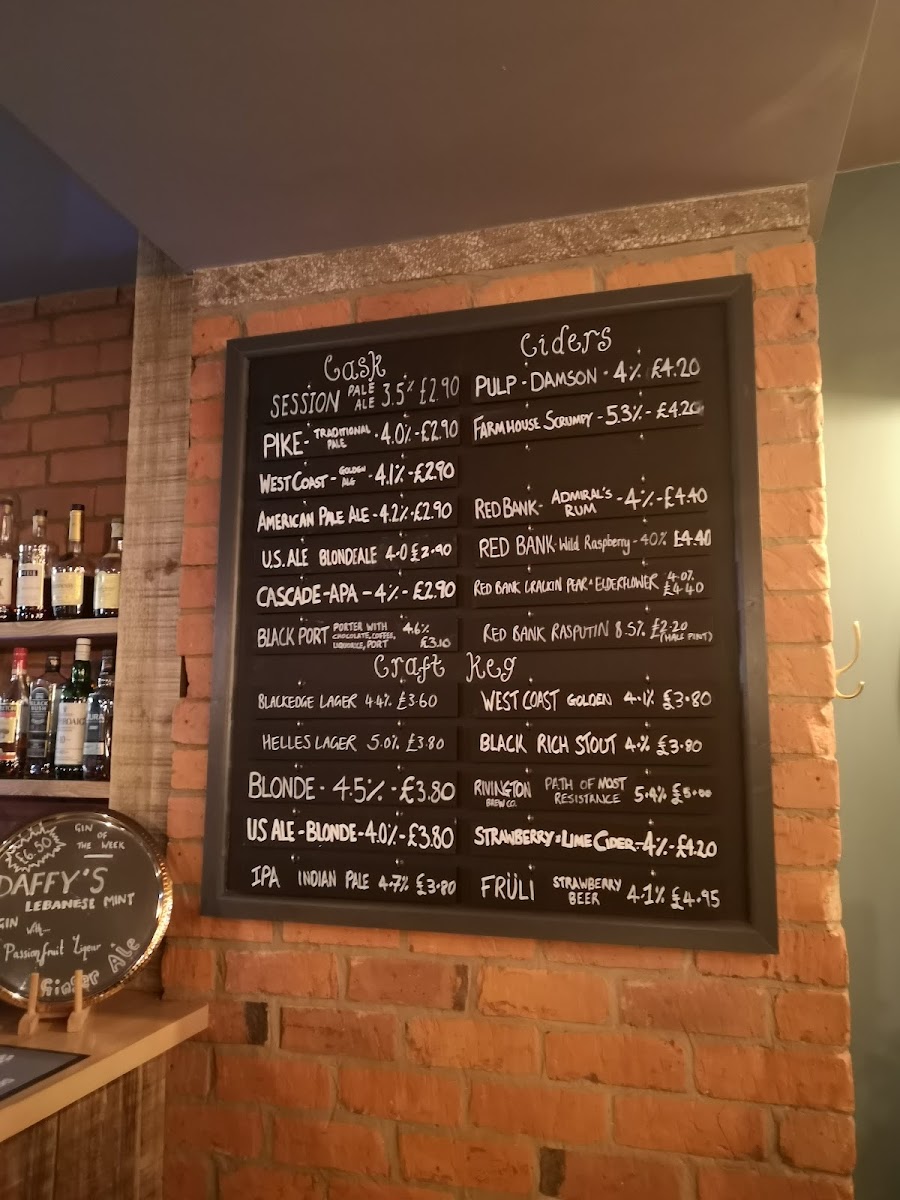 Cask
SESSION PALE ALE 3.5% £2.90
PIKE - TRADITIONAL PALE - 4.0% - £2.90
WEST COAST - GOLDEN ALE - 4.1% - £2.90
AMERICAN PALE ALE - 4.2% - £2.90
U.S. ALE BLONDE ALE 4.0 £2.90
CASCADE - APA - 4% - £2.90
BLACK PORT PORTER WITH CHOCOLATE, COFFEE, LIQUORICE, PORT 4.6% £3.10
Ciders
PULP - DAMSON - 4% £4.20
FARMHOUSE SCRUMPY - 5.3% - £4.20
RED BANK - ADMIRAL'S RUM - 4% - £4.40
RED BANK - Wild Raspberry - 4.0% £4.40
RED BANK PEAR & ELDERFLOWER 4.0% £4.40
RED BANK RASPUTIN 8.5% £2.20 (HALF PINT)
Craft Keg
BLACKEDGE LAGER 4.4% £3.60
HELLES LAGER 5.0% £3.80
BLONDE - 4.5% - £3.80
US ALE - BLONDE - 4.0% - £3.80
IPA INDIAN PALE 4.7% £3.80
WEST COAST GOLDEN 4.1% £3.80
BLACK RICH STOUT 4% £3.80
RIVINGTON BREW CO. PATH OF MOST RESISTANCE 5.4% £5.00
STRAWBERRY & LIME CIDER - 4% - £4.20
FRÜLI STRAWBERRY BEER 4.1% £4.95
£6.50
GIN OF
THE WEEK
DAFFY'S
LEBANESE MINT
GIN with...
Passionfruit Liqeur
Ginger Ale